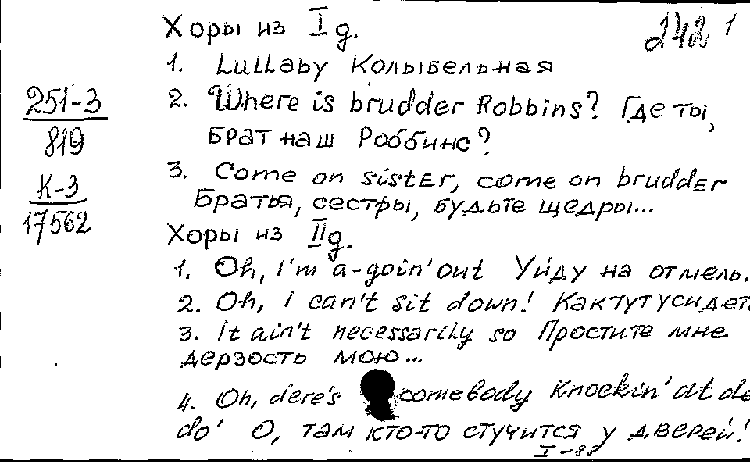 Хоры из I д.
242 1
1. Lullaby Колыбельная
251-3
819
К-3
17562
2. Where is brudder Robbins? Где ты,
Брат наш Роббинс?
3. Come on sister, come on brudder
Братья, сестры, будьте щедры...
Хоры из II д.
1. Oh, I'm a-goin' out Уйду на отмель.
2. Oh, I can't sit down! Как тут усидеть
3. It ain't necessarily so Простите мне
дерзость мою...
4. Oh, dere's somebody Knockin' at de
do' О, там кто-то стучится у дверей!
I-88